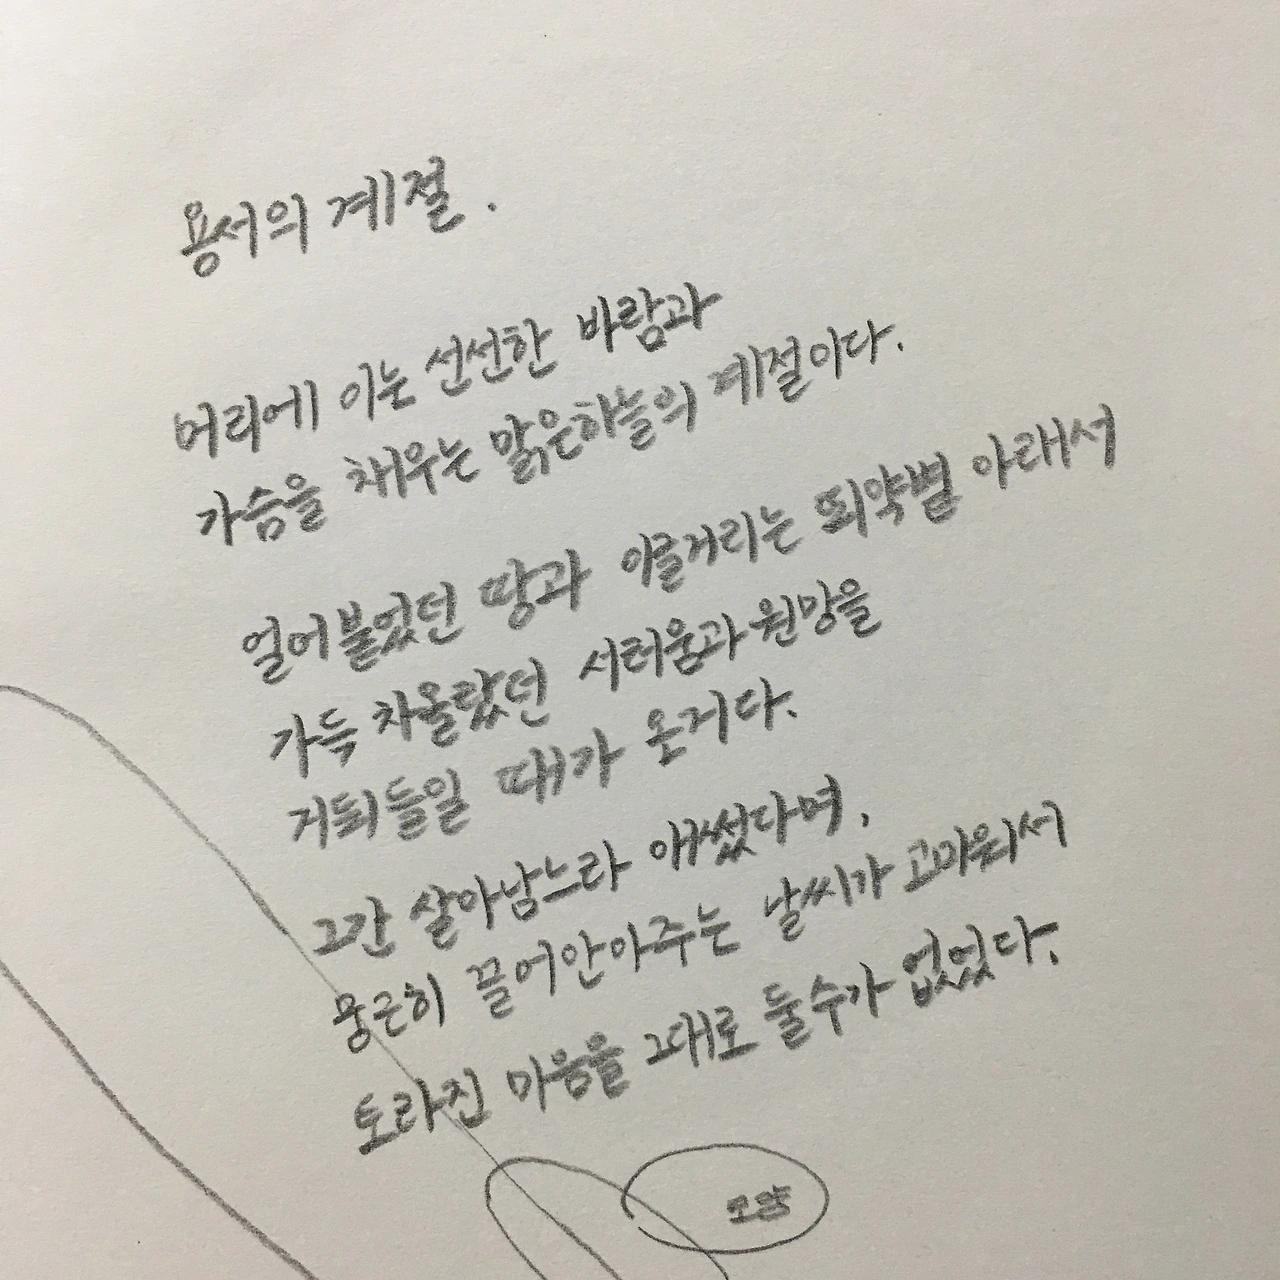 용서의 계절.
머리에 이는 선선한 바람과
가슴을 채우는 맑은하늘의 계절이다.
얼어붙었던 땅과 이글거리는 뙤약볕 아래서
가득 차올랐던 서러움과 원망을
거둬들일 때가 온거다.
그간 살아남느라 애썼다며,
뭉근히 끌어안아주는 날씨가 고마워서
토라진 마음을 그대로 둘수가 없었다.